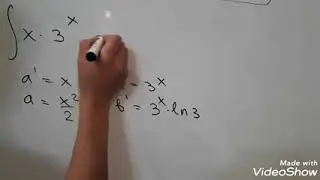 ∫ x · 3^x
a' = x = 3^x
a = x²/2 b' = 3^x · ln 3
Made with
VideoShow